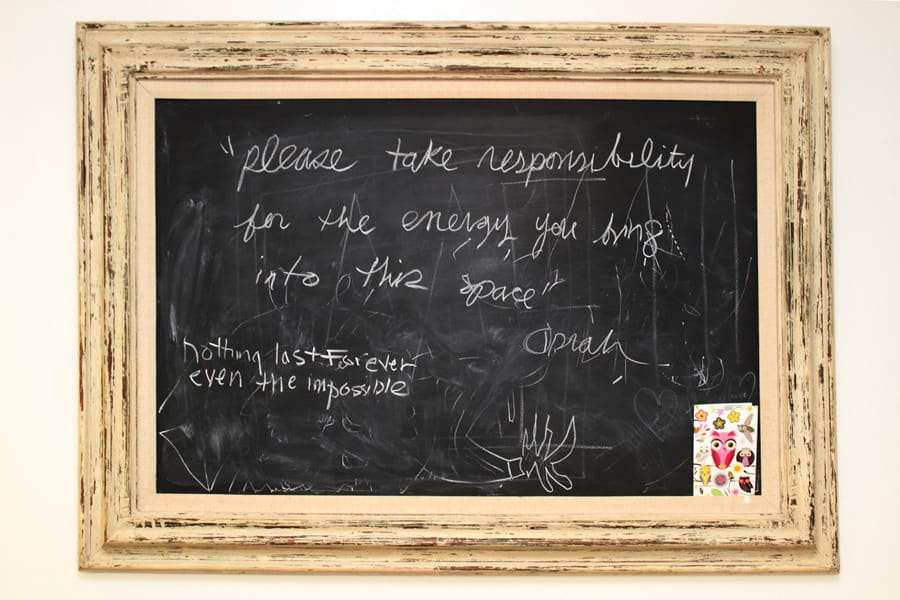 "please take responsibility
for the energy you bring
into this space"
Oprah
nothing last forever
even the impossible